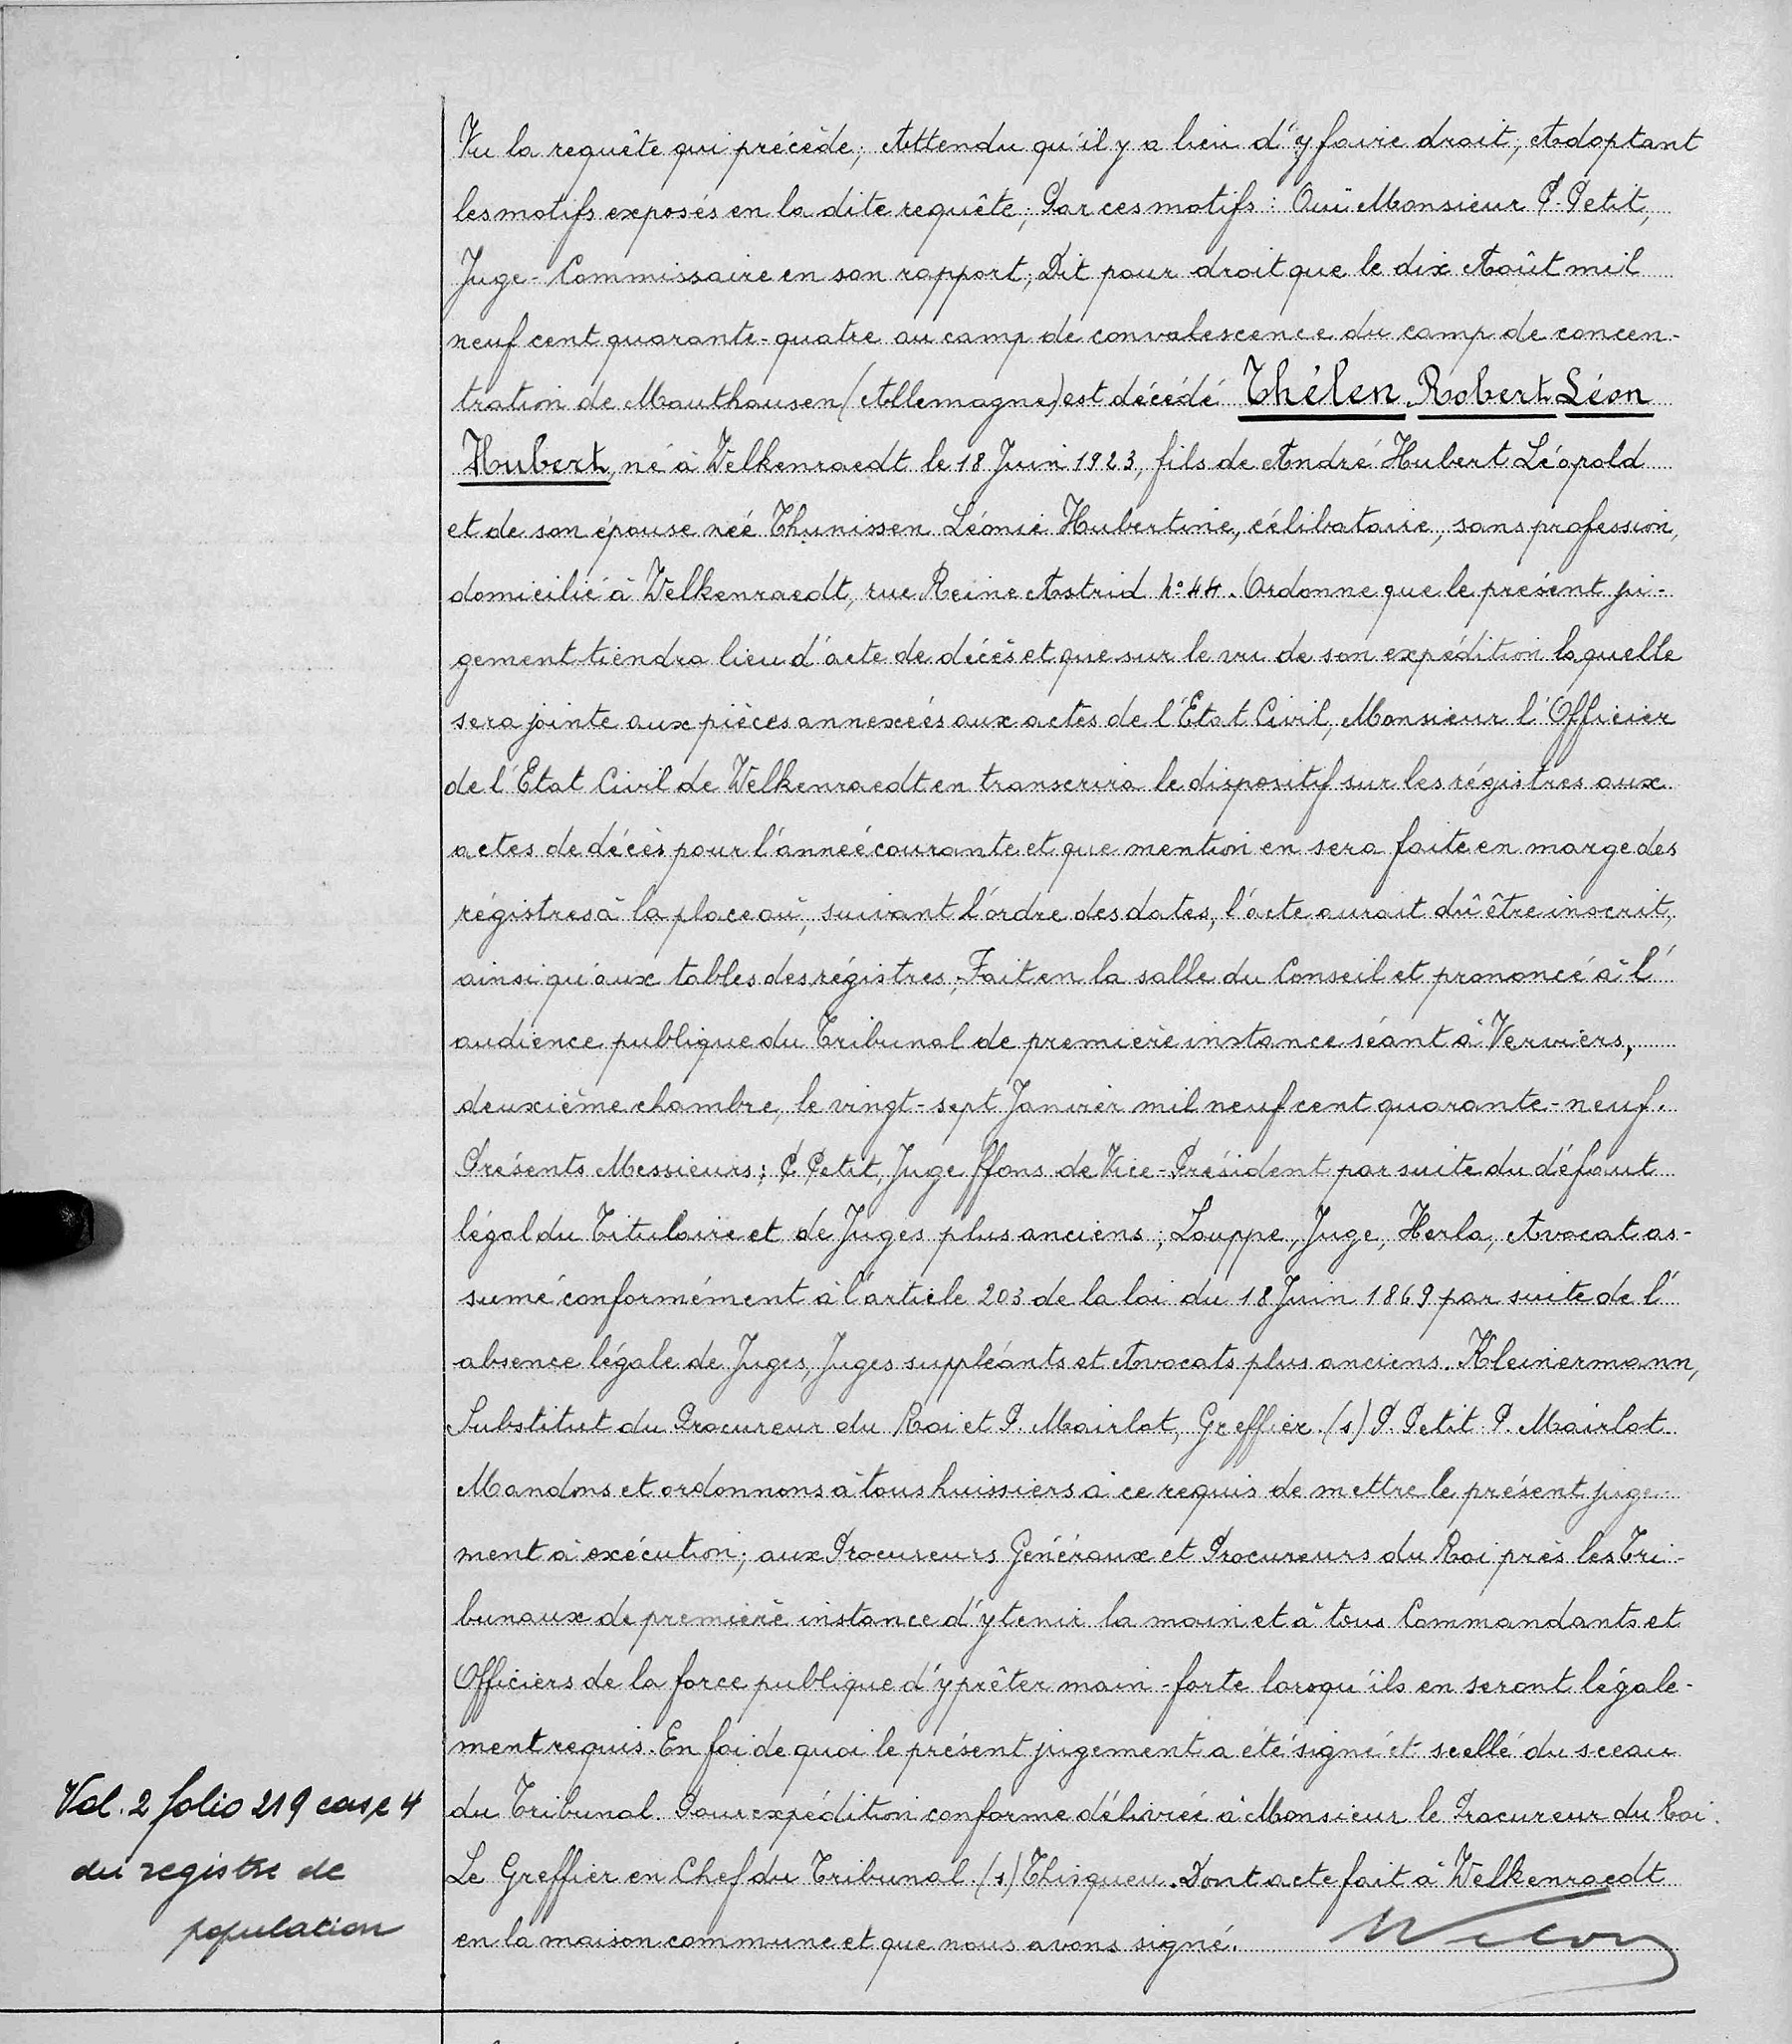 Vu la requête qui précède; Attendu qu'il y a lieu d'y faire droit, Adoptant
les motifs exposés en la dite requête; Par ces motifs: Ouï Monsieur P. Petit,
Juge-Commissaire en son rapport; Dit pour droit que le dix Août mil
neuf cent quarante-quatre au camp de convalescence du camp de concen-
tration de Mauthausen (Allemagne) est décédé Thélen, Robert Léon
Hubert, né à Welkenraedt le 18 Juin 1923, fils de André Hubert Léopold
et de son épouse née Thunissen Léonie Hubertine, célibataire, sans profession,
domicilié à Welkenraedt, rue Reine Astrid N°44. Ordonne que le présent ju-
gement tiendra lieu d'acte de décès et que sur le vu de son expédition laquelle
sera jointe aux pièces annexées aux actes de l'Etat Civil, Monsieur l'Officier
de l'Etat Civil de Welkenraedt en transcrira le dispositif sur les régistres aux
actes de décès pour l'année courante et que mention en sera faite en marge des
régistres à la place où, suivant l'ordre des dates, l'acte aurait dû être inscrit,
ainsi qu'aux tables des régistres; Fait en la salle du Conseil et prononcé à l'
audience publique du Tribunal de première instance séant à Verviers,
deuxième chambre, le vingt-sept Janvier mil neuf cent quarante-neuf.
Présents Messieurs: P. Petit, Juge ffons de Vice-Président par suite du défaut
légal du Titulaire et de Juges plus anciens; Louppe, Juge, Herla, Avocat as-
sumé conformément à l'article 203 de la loi du 18 Juin 1869 par suite de l'
absence légale de Juges, Juges suppléants et Avocats plus anciens. Kleinermann,
Substitut du Procureur du Roi et P. Mairlot, Greffier. (s) P. Petit P. Mairlot
Mandons et ordonnons à tous huissiers à ce requis de mettre le présent juge-
ment à exécution; aux Procureurs Généraux et Procureurs du Roi près les Tri-
bunaux de première instance d'y tenir la main et à tous Commandants et
Officiers de la force publique d'y prêter main-forte lorsqu'ils en seront légale-
ment requis. En foi de quoi le présent jugement a été signé et scellé du sceau
Vol. 2 folio 219 case 4
du registre de
population
du Tribunal. Pour expédition conforme délivrée à Monsieur le Procureur du Roi.
Le Greffier en Chef du Tribunal. (s) Thisqueu. Dont acte fait à Welkenraedt
en la maison commune et que nous avons signé.